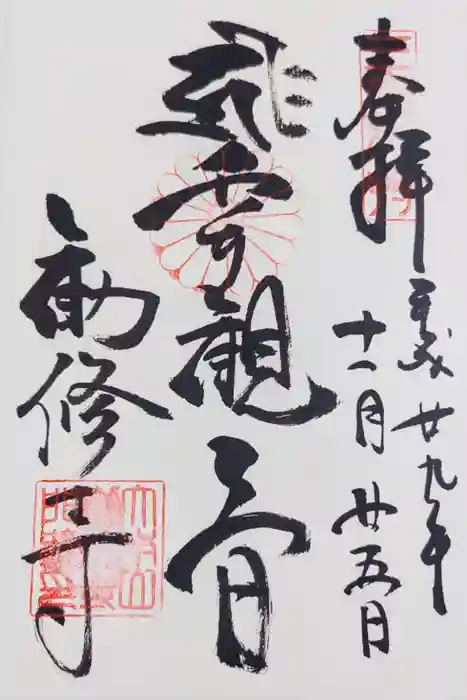 奉拝 平成廿九年
十一月廿五日
飛雲観音
勧修寺